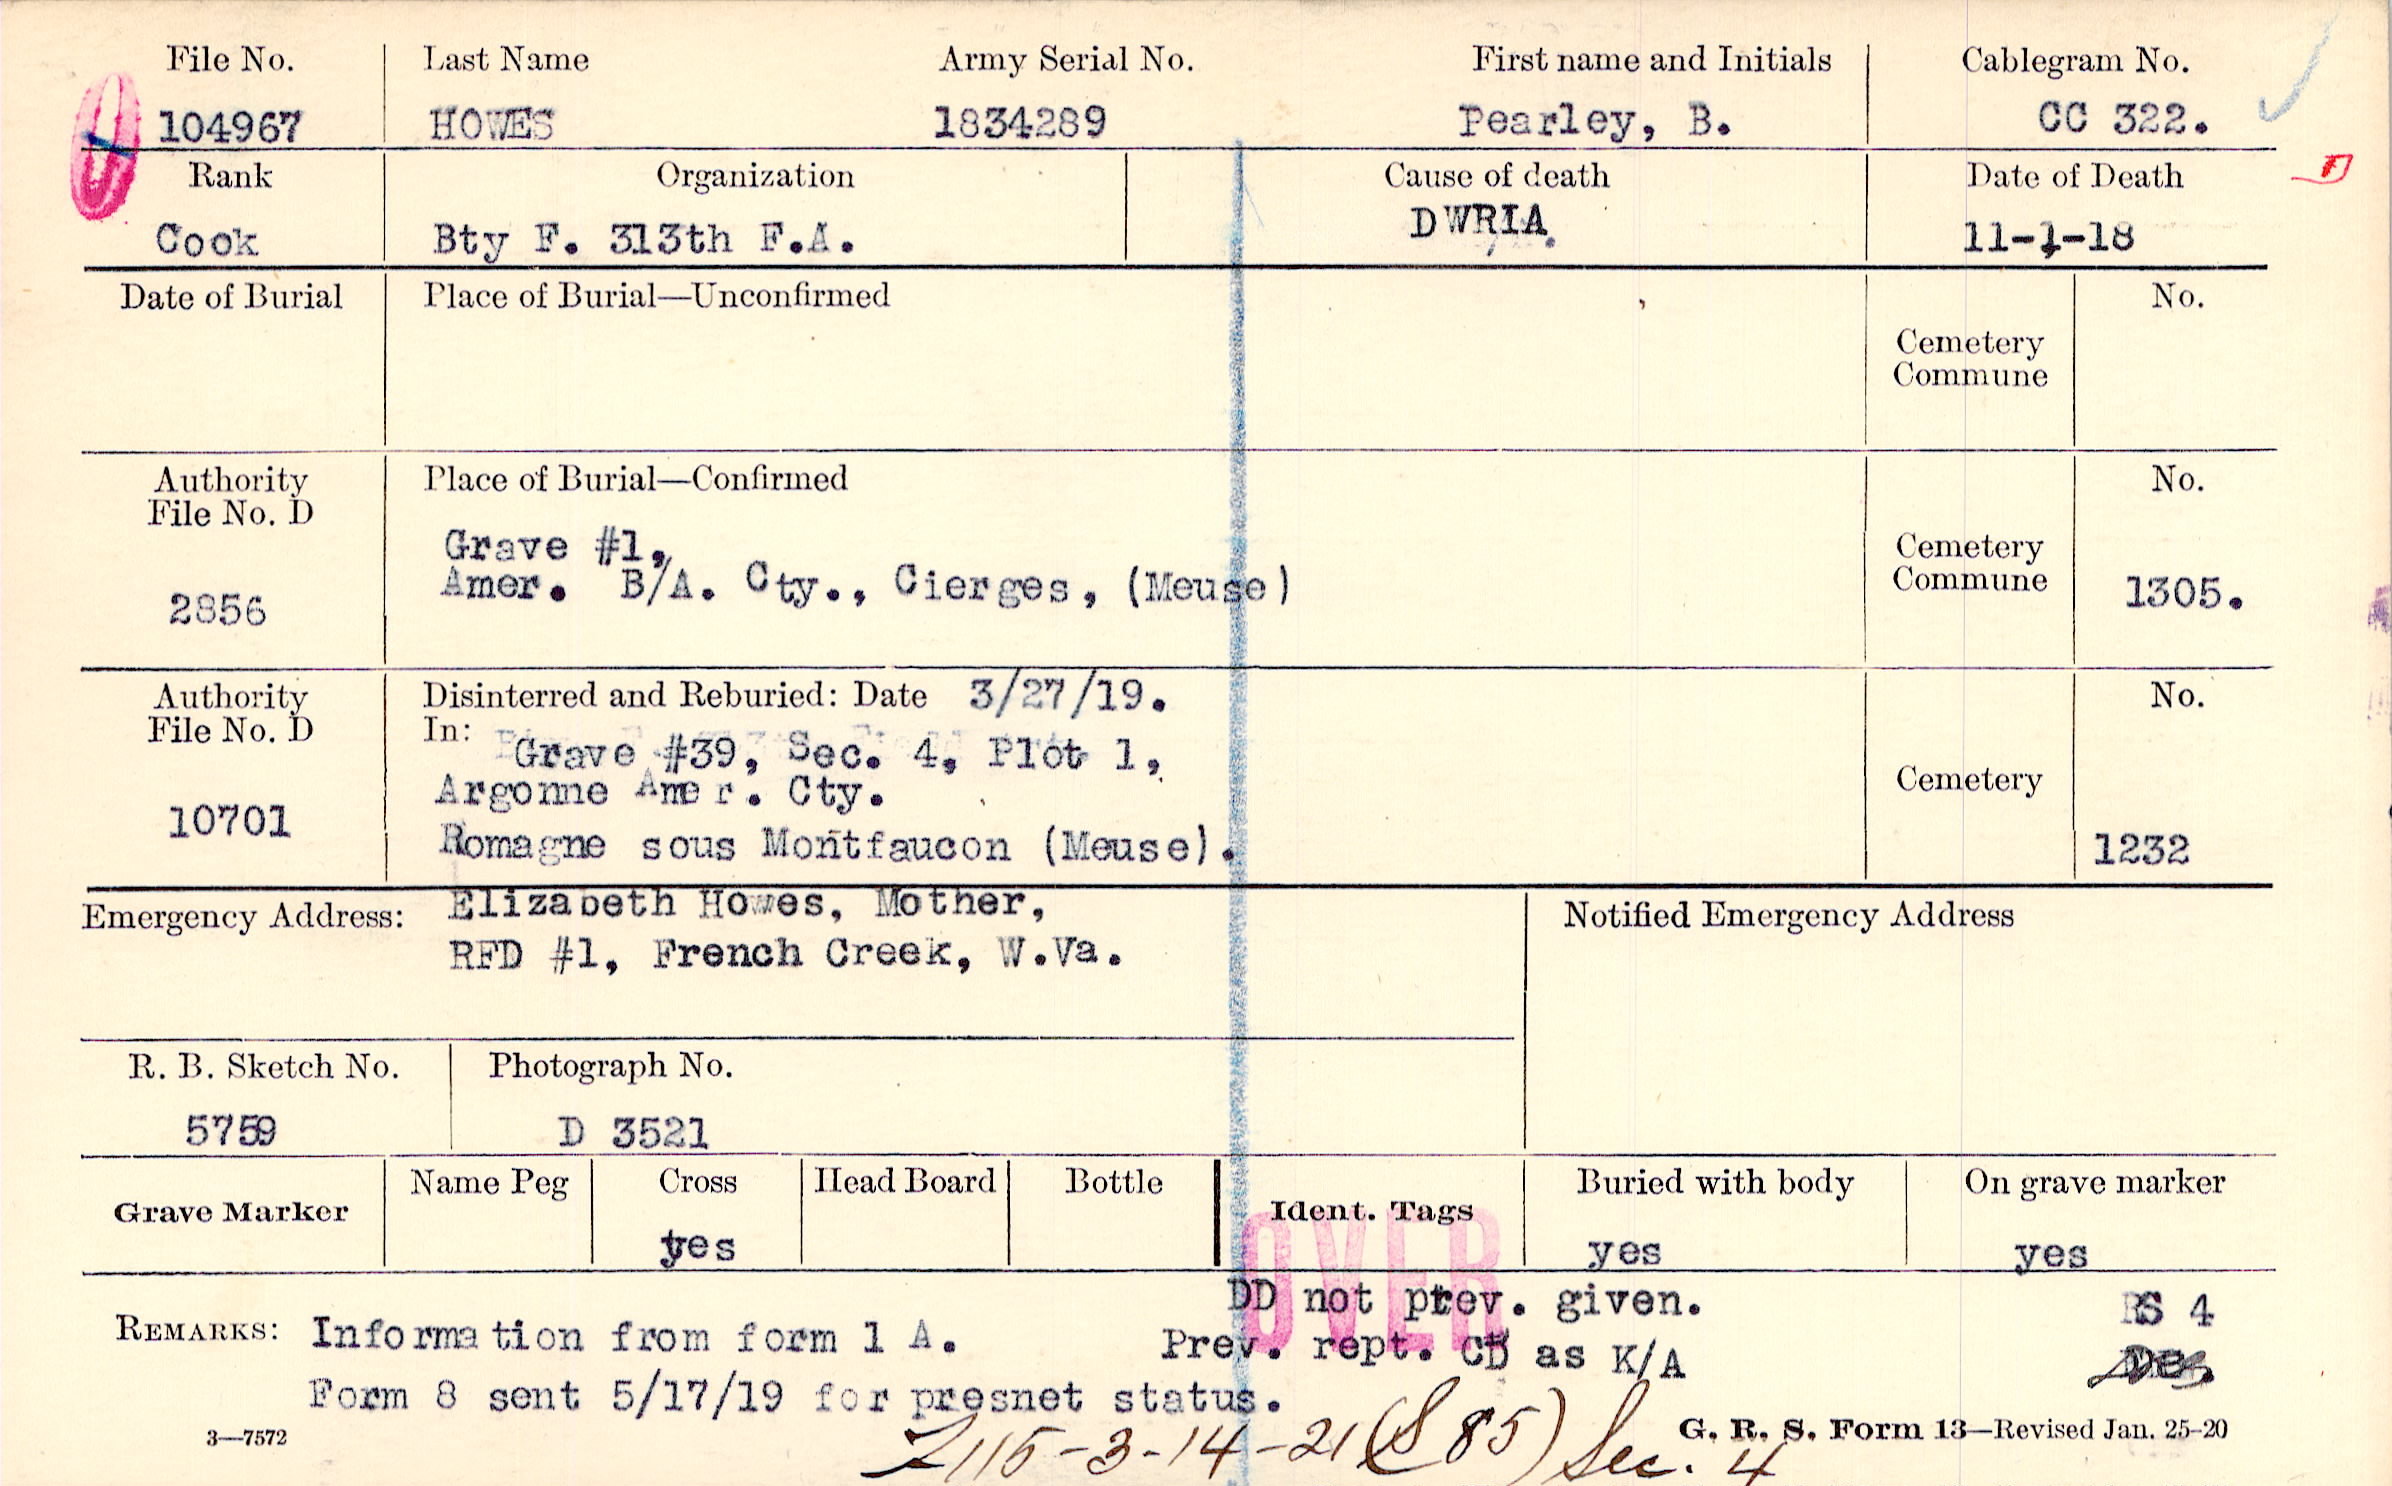 File No. Last Name Army Serial No. First name and Initials Cablegram No.
104967 HOWES 1834289 Pearley, B. CC 322.
Rank Organization Cause of death Date of Death
Cook Bty F. 313th F.A. DWRIA. 11-1-18
Date of Burial Place of Burial—Unconfirmed No.
Cemetery
Commune
Authority Place of Burial—Confirmed No.
File No. D
Grave #1,
Amer. B/A. Cty., Cierges, (Meuse)
Cemetery
Commune
2856 1305.
Authority Disinterred and Reburied: Date 3/27/19. No.
File No. D In:
Grave #39, Sec. 4, Plot 1,
Argonne Amer. Cty. Cemetery
10701
Romagne sous Montfaucon (Meuse). 1232
Emergency Address: Elizabeth Howes, Mother, Notified Emergency Address
RFD #1, French Creek, W.Va.
R. B. Sketch No. Photograph No.
5759 D 3521
Grave Marker Name Peg Cross Head Board Bottle Ident. Tags Buried with body On grave marker
yes yes yes
OVER
DD not prev. given. RS 4
REMARKS: Information from form 1 A. Prev. rept. CD as K/A
Form 8 sent 5/17/19 for presnet status.
3—7572 G. R. S. Form 13—Revised Jan. 25-20
115-3-14-21 (S 85) Sec. 4